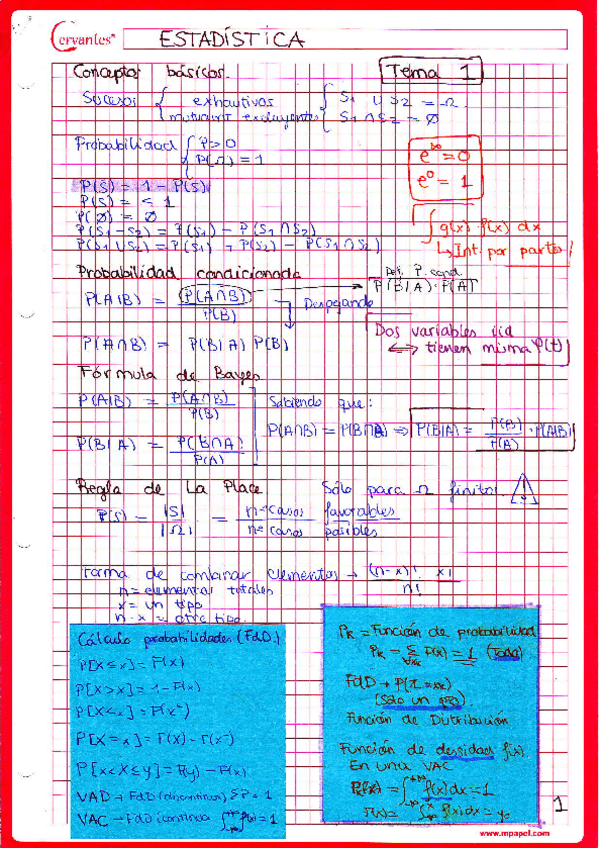 Cervantes® ESTADÍSTICA
Conceptos básicos. Tema 1
Sucesos { exhautivos { S1 ∪ S2 = Ω
mutuam. excluyentes { S1 ∩ S2 = ∅
Probabilidad { P>0
P(Ω) = 1
e^∞ = 0
e^0 = 1
P(S) = 1 - P(S)
P(S) = ≤ 1
P(∅) = ∅
P(S1-S2) = P(S1) - P(S1 ∩ S2)
P(S1 ∪ S2) = P(S1) + P(S2) - P(S1 ∩ S2)
∫ g(x) f(x) dx
↳ Int. por partes
Probabilidad condicionada
P(A|B) = P(A∩B) / P(B) → P(B|A)·P(A)
Despejando
P(A∩B) = P(B|A) P(B)
Dos variables iid
⟺ tienen misma φ(t)
Fórmula de Bayes
P(A|B) = P(A∩B) / P(B)
Sabiendo que:
P(A∩B) = P(B∩A) ⇒ P(B|A) = P(B) / P(A) · P(A|B)
P(B|A) = P(B∩A) / P(A)
Regla de La Place Sólo para Ω finitos!
P(S) = |S| / |Ω| = nº casos favorables / nº casos posibles
Forma de combinar elementos → (n-x)! x! / n!
n = elementos totales
x = un tipo
n-x = otro tipo
Cálculo probabilidades (FdD)
P[X≤x] = F(x)
P[X>x] = 1-F(x)
P[X<x] = F(x⁻)
P[X=x] = F(x) - F(x⁻)
P[x<X≤y] = F(y) - F(x)
VAD → FdD (discontinua) ΣP = 1
VAC → FdD continua ∫ f(x) = 1
PK = Función de probabilidad
PK = Σ P(x) = 1 (Toda)
(Sólo un pto)
Función de Distribución
Función de densidad f(x)
En una VAC
∫ f(x) dx = 1
1
www.mpapel.com